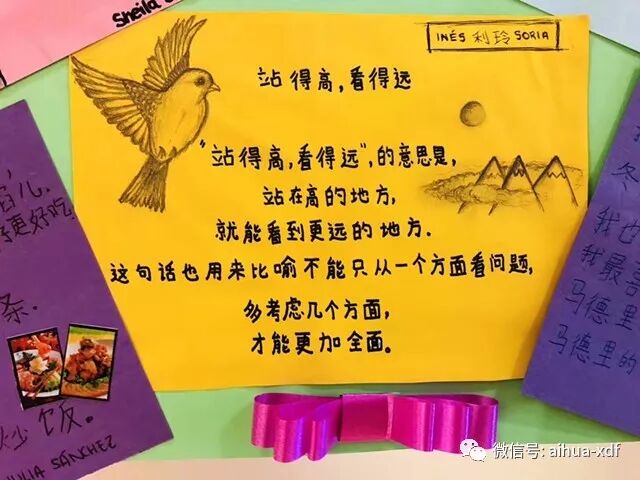 Sheila S
INÉS 利玲 SORIA
站得高,看得远
"站得高,看得远",的意思是,
站在高的地方,
就能看到更远的地方.
这句话也用来比喻不能只从一个方面看问题,
多考虑几个方面,
才能更加全面。
儿.
更好吃.
条.
炒饭。
JULIA SÁNCHEZ
冬
我也
我最喜
马德里
马德里的
微信号: aihua-xdf